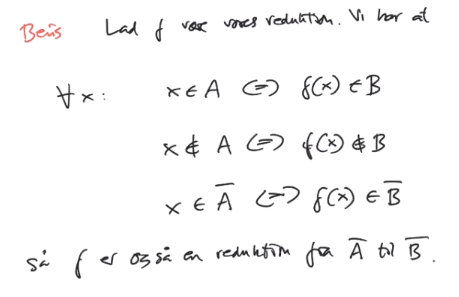 Bevis Lad f være vores reduktion. Vi har at
∀x: x ∈ A ⇔ f(x) ∈ B
x ∉ A ⇔ f(x) ∉ B
x ∈ A̅ ⇔ f(x) ∈ B̅
så f er også en reduktion fra A̅ til B̅.